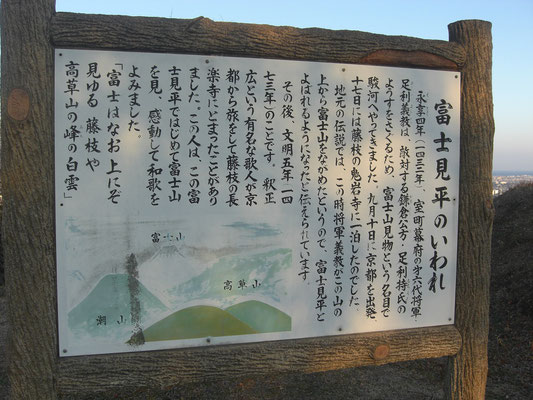 富士見平のいわれ
永享四年(一四三二年、室町幕府の才六代将軍・
足利義教は、敵対する鎌倉公方・足利持氏の
ようすをさぐるため、富士山見物という名目で
駿河へやってきました。九月十日に京都を出発、
十七日には藤枝の鬼岩寺に一泊したのでした。
地元の伝説では、この時将軍義教がこの山の
上から富士山をながめたというので、富士見平と
よばれるようになったと伝えられています。
その後、文明五年一四
七三年のことです。釈正
広という有名な歌人が京
都から旅をして藤枝の長
楽寺にとまったことがあり
ました。この人は、この富
士見平ではじめて富士山
を見、感動して和歌を
よみました。
「富士はなお上にぞ
見ゆる藤枝や
高草山の峰の白雲」
富士山
高草山
潮山